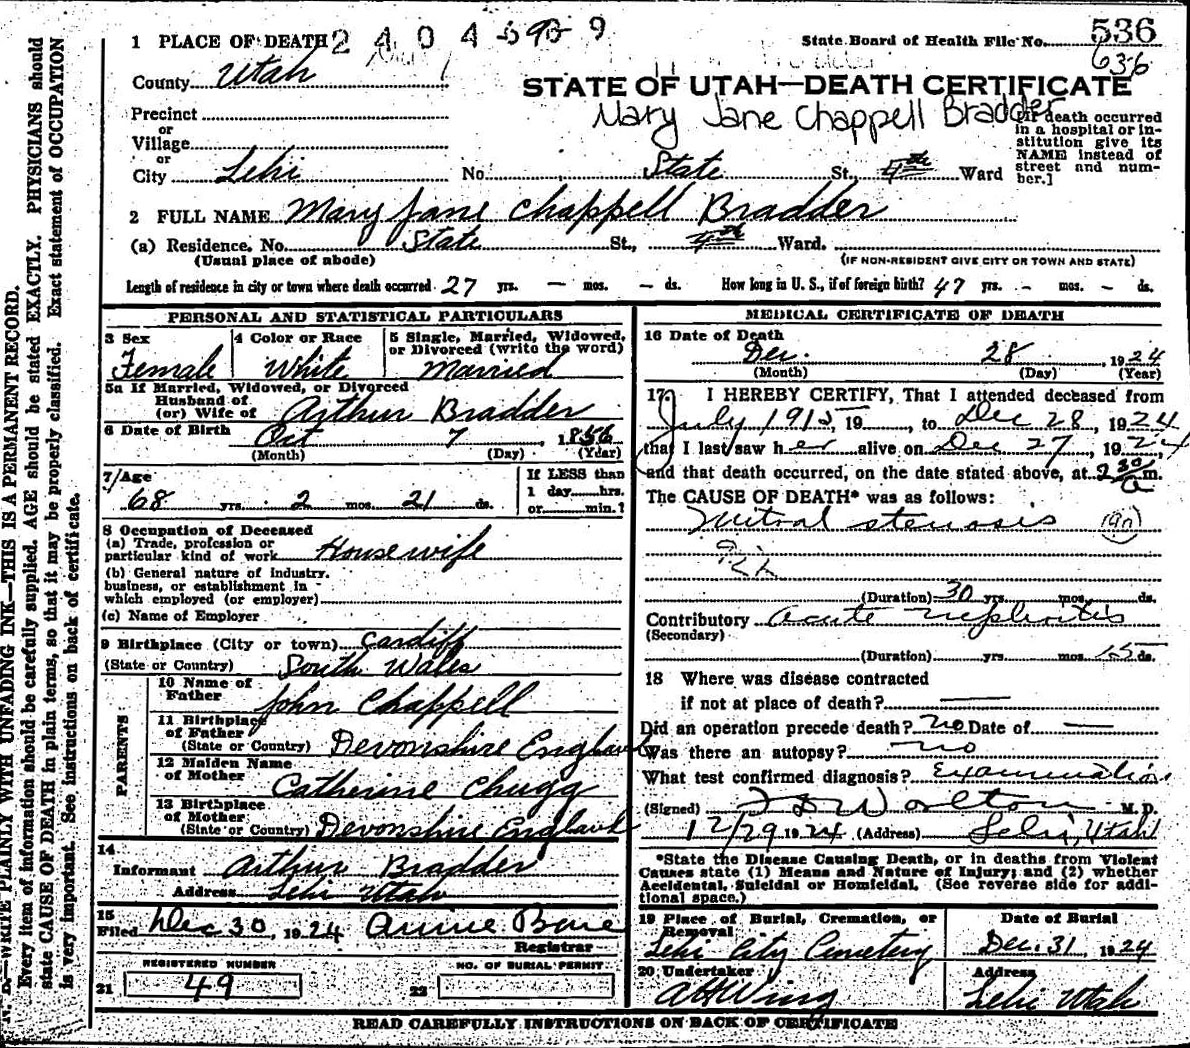 1 PLACE OF DEATH 2404 9
State Board of Health File No. 536
636
County Utah
STATE OF UTAH—DEATH CERTIFICATE
Mary Jane Chappell Bradder
Precinct
or
Village
or
City Lehi No. State St., 4th Ward
[If death occurred
in a hospital or in-
stitution give its
NAME instead of
street and num-
ber.]
2 FULL NAME Mary Jane Chappell Bradder
(a) Residence. No. State St., 4th Ward.
(Usual place of abode) (IF NON-RESIDENT GIVE CITY OR TOWN AND STATE)
Length of residence in city or town where death occurred 27 yrs. — mos. — ds. How long in U. S., if of foreign birth? 47 yrs. - mos. - ds.
PERSONAL AND STATISTICAL PARTICULARS
3 Sex
Female
4 Color or Race
White
5 Single, Married, Widowed,
or Divorced (write the word)
Married
5a If Married, Widowed, or Divorced
Husband of
(or) Wife of Arthur Bradder
6 Date of Birth Oct 7, 1856
(Month) (Day) (Year)
7 Age
68 yrs. 2 mos. 21 ds.
If LESS than
1 day......hrs.
or......min.?
8 Occupation of Deceased
(a) Trade, profession or
particular kind of work Housewife
(b) General nature of industry.
business, or establishment in
which employed (or employer)
(c) Name of Employer
9 Birthplace (City or town) Cardiff
(State or Country) South Wales
PARENTS
10 Name of
Father John Chappell
11 Birthplace
of Father
(State or Country) Devonshire England
12 Maiden Name
of Mother Catherine Chugg
13 Birthplace
of Mother
(State or Country) Devonshire England
14
Informant Arthur Bradder
Address Lehi Utah
15
Filed Dec 30, 1924 Annie Bone
Registrar
REGISTERED NUMBER
21 49
NO. OF BURIAL PERMIT
22
MEDICAL CERTIFICATE OF DEATH
16 Date of Death
Dec. 28, 1924
(Month) (Day) (Year)
17. I HEREBY CERTIFY, That I attended deceased from
July 1915, 19......, to Dec 28, 1924
that I last saw her alive on Dec 27, 1924
and that death occurred, on the date stated above, at 2 30 a m.
The CAUSE OF DEATH* was as follows:
Mitral stenosis (90)
92a
(Duration) 30 yrs. mos. ds.
Contributory Acute Nephritis
(Secondary)
(Duration) yrs. mos. 15 ds.
18 Where was disease contracted
if not at place of death? —
Did an operation precede death? no Date of —
Was there an autopsy? no
What test confirmed diagnosis? Examination
(Signed) Worlton M. D.
12/29 1924 (Address) Lehi, Utah
*State the Disease Causing Death, or in deaths from Violent
Causes state (1) Means and Nature of Injury; and (2) whether
Accidental, Suicidal or Homicidal. (See reverse side for addi-
tional space.)
19 Place of Burial, Cremation, or
Removal
Lehi City Cemetery
Date of Burial
Dec. 31, 1924
20 Undertaker
A H Wing
Address
Lehi Utah
READ CAREFULLY INSTRUCTIONS ON BACK OF CERTIFICATE
WRITE PLAINLY WITH UNFADING INK—THIS IS A PERMANENT RECORD.
Every item of information should be carefully supplied. AGE should be stated EXACTLY. PHYSICIANS should
state CAUSE OF DEATH in plain terms, so that it may be properly classified. Exact statement of OCCUPATION
is very important. See instructions on back of certificate.